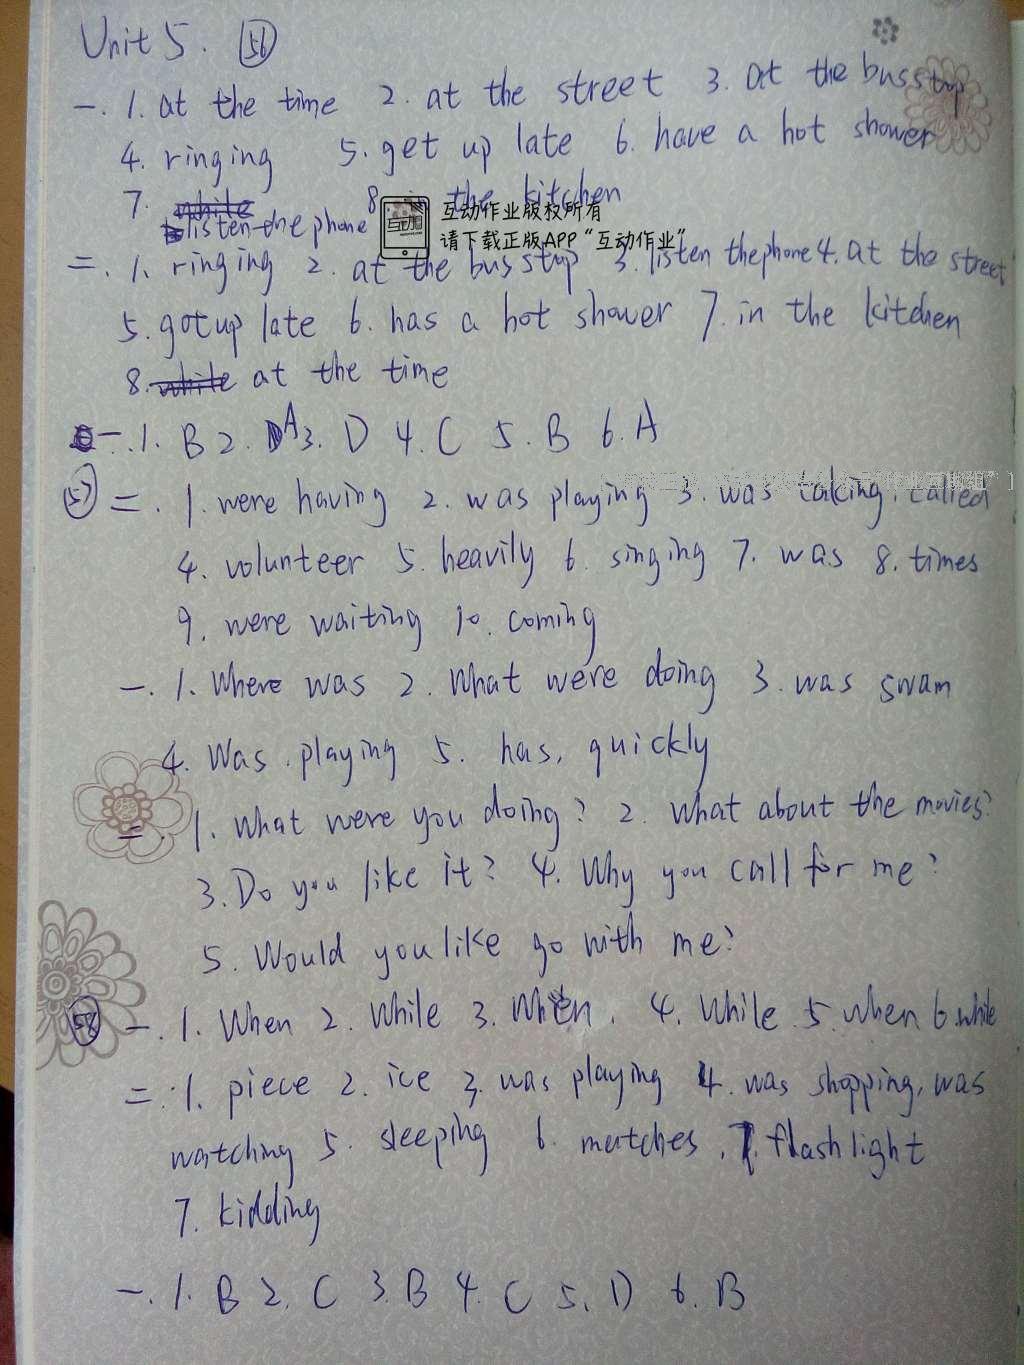 Unit 5. 56
一. 1. at the time 2. at the street 3. at the bus stop
4. ringing 5. get up late 6. have a hot shower
7. listen the phone 8. in the kitchen
互动作业版权所有
请下载正版APP“互动作业”
二. 1. ringing 2. at the bus stop 3. listen the phone 4. at the street
5. got up late 6. has a hot shower 7. in the kitchen
8. at the time
一. 1. B 2. A 3. D 4. C 5. B 6. A
57 二. 1. were having 2. was playing 3. was talking. called
4. volunteer 5. heavily 6. singing 7. was 8. times
9. were waiting 10. coming
一. 1. Where was 2. What were doing 3. was swam
4. Was playing 5. has, quickly
二. 1. What were you doing? 2. What about the movies?
3. Do you like it? 4. Why you call for me?
5. Would you like go with me?
58 一. 1. When 2. While 3. When. 4. While 5. when 6. while
二. 1. piece 2. ice 3. was playing 4. was shopping, was
watching 5. sleeping 6. matches, flashlight
7. kidding
一. 1. B 2. C 3. B 4. C 5. D 6. B